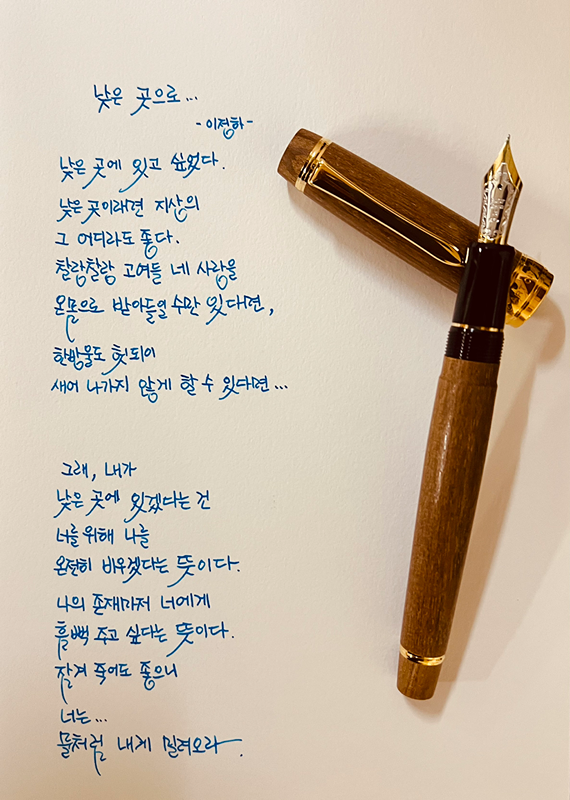 낮은 곳으로...
- 이정하 -
낮은 곳에 있고 싶었다.
낮은 곳이래면 지상의
그 어디라도 좋다.
찰랑찰랑 고여들 네 사랑을
온몸으로 받아들일 수만 있다면,
한방울도 헛되이
새어 나가지 않게 할 수 있다면...
그래, 내가
낮은 곳에 있겠다는 건
너를 위해 나를
온전히 비우겠다는 뜻이다.
나의 존재마저 너에게
흠뻑 주고 싶다는 뜻이다.
잠겨 죽어도 좋으니
너는...
물처럼 내게 밀려오라